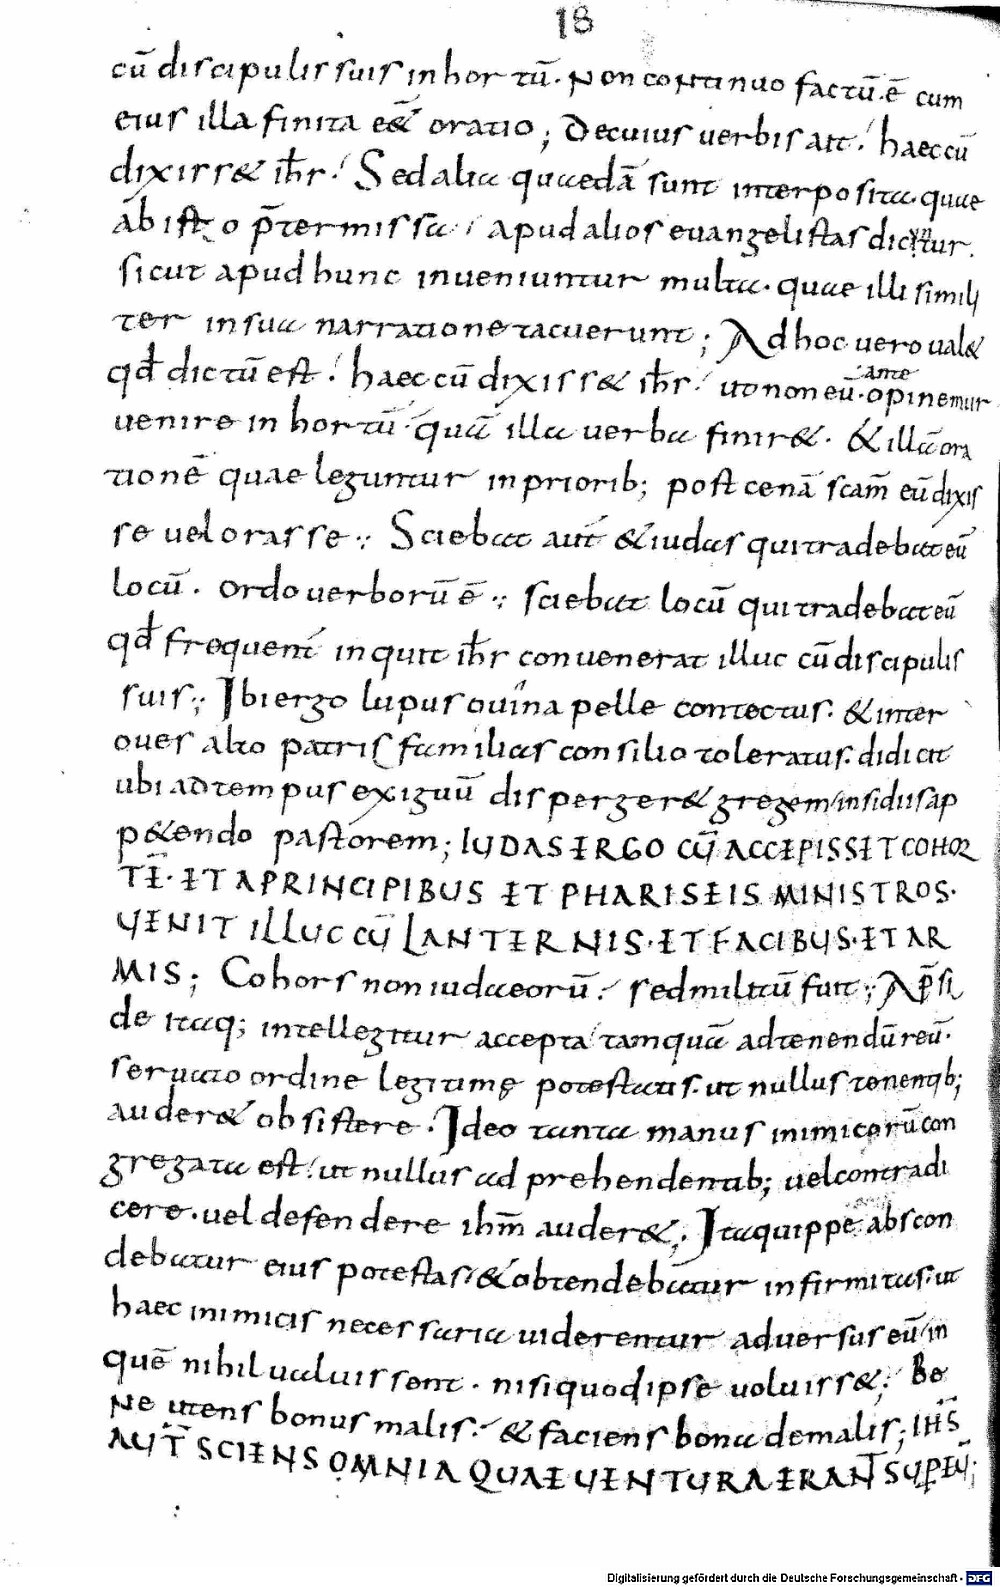 18
cū discipulis suis in hortū. Non continuo factū. ē cum
eius illa finita eēt oratio; De cuius verbis ait. haec cū
dixiss& ihs. Sed alia quaedā sunt interposita. quae
ab isto p̄termissa apud alios euangelistas dicuntur.
sicut apud hunc inueniuntur multa. quae illi simili
ter in sua narratione tacuerunt; Ad hoc uero ual&
qđ dictū est. haec cū dixiss& ihs. ut non eū ante opinemur
uenire in hortū quā illa uerba finir&. & illā ora
tionē quae leguntur in priorib; post cenā scam̄ eū dixis
se uel orasse; Sciebat aut̄ & iudas qui tradebat eū
locū. Ordo uerborū ē; sciebat locū qui tradebat eū
qđ frequent̄ inquit ihs conuenerat illuc cū discipulis
suis; Ibi ergo lupus ouina pelle contectus. & inter
oues alto patris familias consilio toleratus. didicit
ubi ad tempus exiguū disperger& gregem insidiis ap
p&endo pastorem; IUDAS ERGO CŪ ACCEPISSET COHOR
TĒ. ET A PRINCIPIBUS ET PHARISEIS MINISTROS.
UENIT ILLUC CŪ LANTERNIS. ET FACIBUS. ET AR
MIS; Cohors non iudaeorū. sed militū fuit; A p̄si
de itaq; intellegitur accepta tamquā ad tenendū reū.
seruato ordine legitimę potestatis. ut nullus tenentib;
auder& obsistere. Ideo tanta manus inimicorū con
gregata est. ut nullus ad prehendentib; uel contradi
cere. uel defendere ihm̄ auder&; Ita quippe abscon
debatur eius potestas & obtendebatur infirmitas. ut
haec inimicis necessaria uiderentur aduersus eū in
quē nihil ualuissent. nisi quod ipse uoluiss&; Be
ne utens bonus malis. & faciens bona de malis; IHS
AUT̄ SCIENS OMNIA QUAE UENTURA ERANT SUP EŪ;
Digitalisierung gefördert durch die Deutsche Forschungsgemeinschaft - DFG